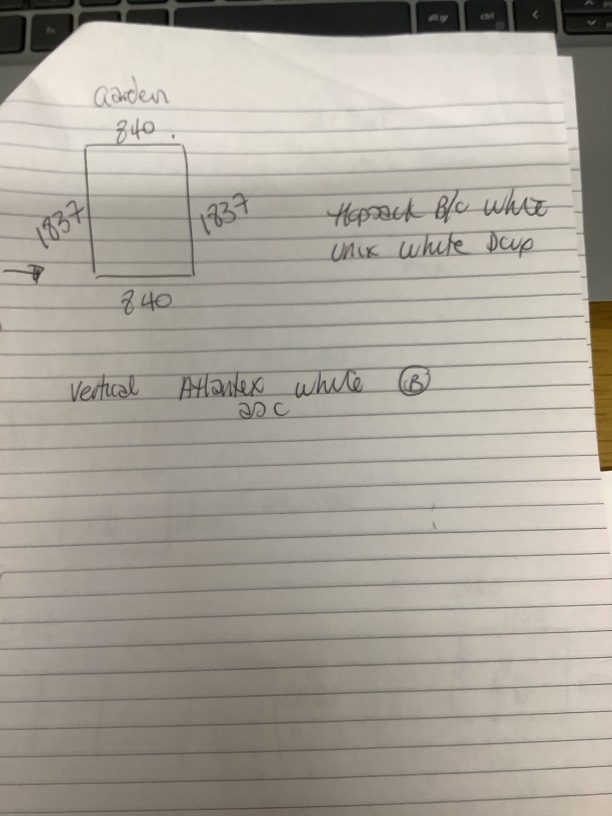 Garden
840
1837
1837
840
Hopsack B/C White
Unix White Dcup
Vertical Atlantex white B
asc